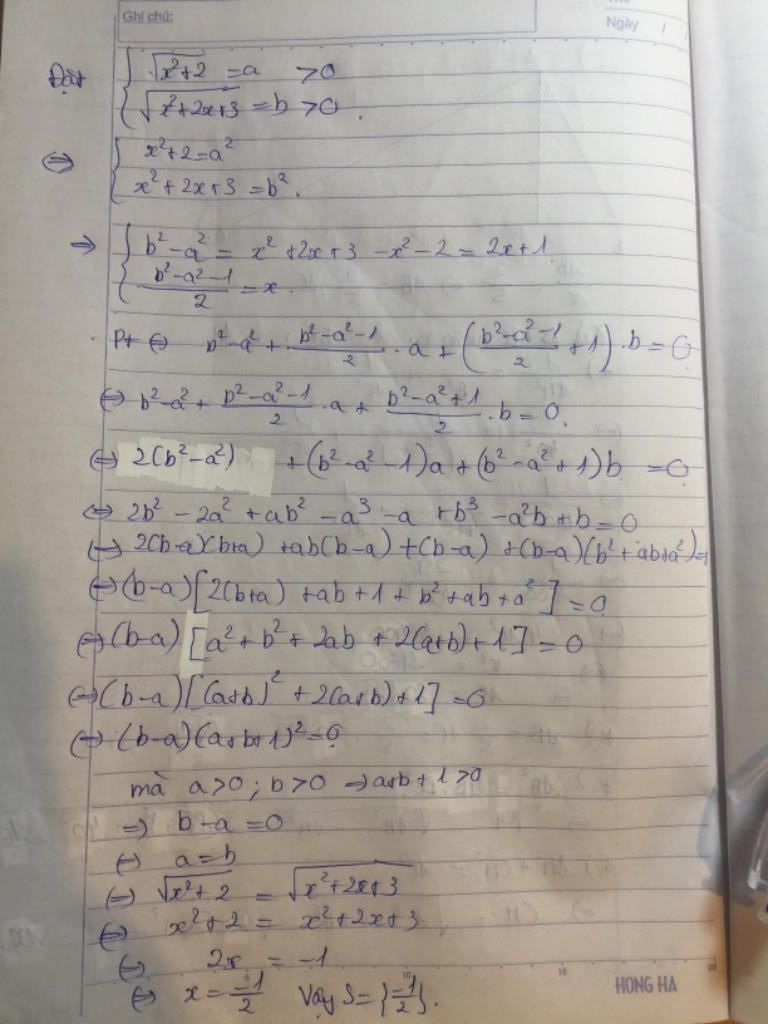 Ghi chú:
Ngày / /
Đặt { √(x²+2) = a > 0
{ √(x²+2x+3) = b > 0.
⇔ { x²+2=a²
{ x²+2x+3 = b².
⇒ { b²-a² = x²+2x+3-x²-2 = 2x+1
{ (b²-a²-1)/2 = x.
Pt ⇔ b²-a²+(b²-a²-1)/2 . a + ((b²-a²-1)/2 + 1) . b = 0
⇔ b²-a²+(b²-a²-1)/2 . a + (b²-a²+1)/2 . b = 0.
⇔ 2(b²-a²) + (b²-a²-1)a + (b²-a²+1)b = 0
⇔ 2b² - 2a² + ab² - a³ - a + b³ - a²b + b = 0
⇔ 2(b-a)(b+a) + ab(b-a) + (b-a) + (b-a)(b²+ab+a²) =
⇔ (b-a)[2(b+a) + ab + 1 + b² + ab + a²] = 0
⇔ (b-a) [a²+b²+2ab + 2(a+b)+1] = 0
⇔ (b-a)[(a+b)² + 2(a+b)+1] = 0
⇔ (b-a)(a+b+1)² = 0
mà a>0 ; b>0 ⇒ a+b+1>0
⇒ b-a = 0
⇔ a = b
⇔ √(x²+2) = √(x²+2x+3)
⇔ x²+2 = x²+2x+3
⇔ 2x = -1
⇔ x = -1/2 Vậy S = {-1/2}.
10 15 20
HONG HA